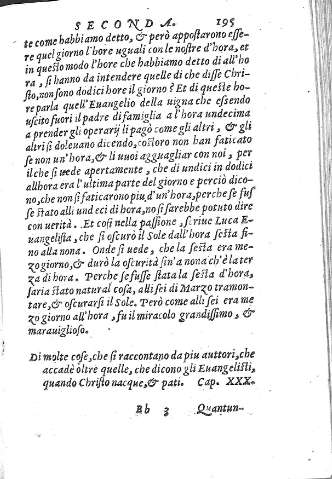 SECONDA. 195
te come habbiamo detto, & però appostarono esse-
re quel giorno l'hore uguali con le nostre d'hora, et
in questo modo l'hore che habbiamo detto di all'ho
ra, si hanno da intendere quelle di che disse Chri-
sto, non sono dodici hore il giorno? Et di queste ho-
re parla quell'Euangelio della uigna che essendo
uscito fuori il padre di famiglia a l'hora undecima
a prender gli operarij li pagò come gli altri, & gli
altri si doleuano dicendo, costoro non han faticato
se non un'hora, & li uuoi agguagliar con noi, per
il che si uede apertamente, che di undici in dodici
allhora era l'ultima parte del giorno e perciò dico-
no, che non si faticorono piu, d'un'hora, perche se fus
se stato alli undeci di hora, no si sarebbe potuto dire
con uerità. Et cosi nella passione, scriue Luca E-
uangelista, che si oscurò il Sole dall'hora sesta fi-
no alla nona. Onde si uede, che la sesta era me-
zo giorno, & durò la oscurità fin'a nona ch'è la ter
za di hora. Perche se fusse stata la sesta d'hora,
saria stato natural cosa, alli sei di Marzo tramon-
tare, & oscurarsi il Sole. Però come alli sei era me
zo giorno all'hora, fu il miracolo grandissimo, &
marauiglioso.
Di molte cose, che si raccontano da piu auttori, che
accadè oltre quelle, che dicono gli Euangelisti,
quando Christo nacque, & patì. Cap. XXX.
Bb 3 Quantun-